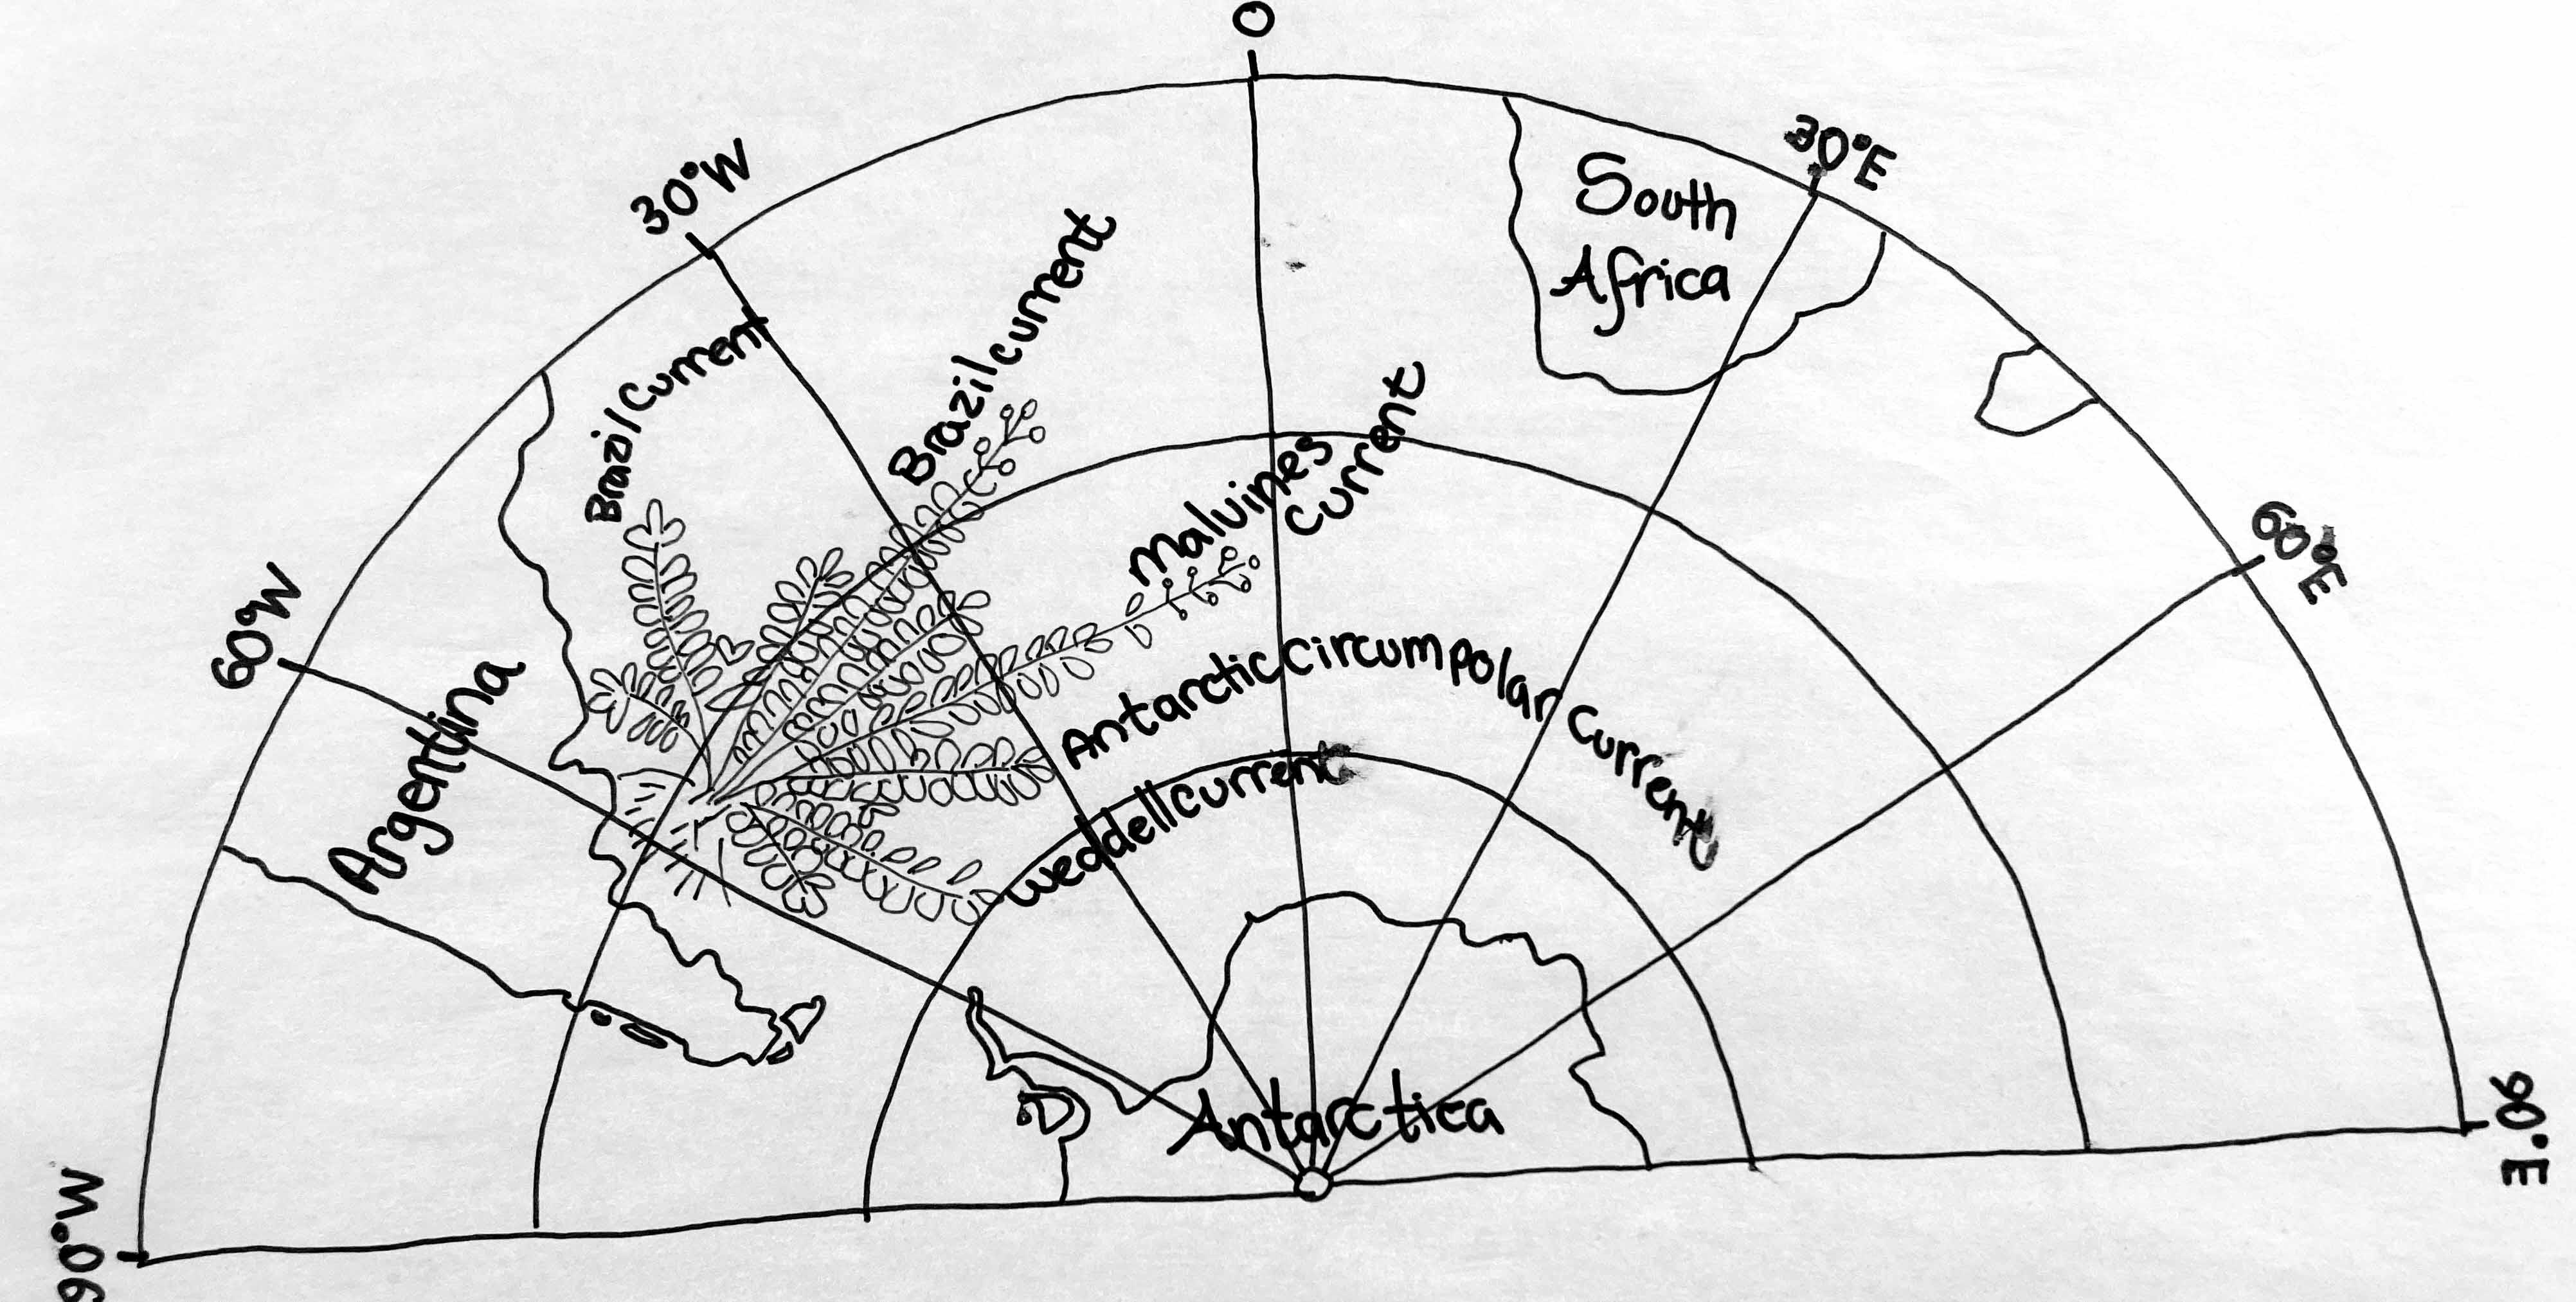 0
30°W
30°E
South
Africa
Brazil Current
Brazil current
malvines
current
60°W
60°E
Argentina
Antarctic circumpolar current
weddell current
Antarctica
90°W
90°E